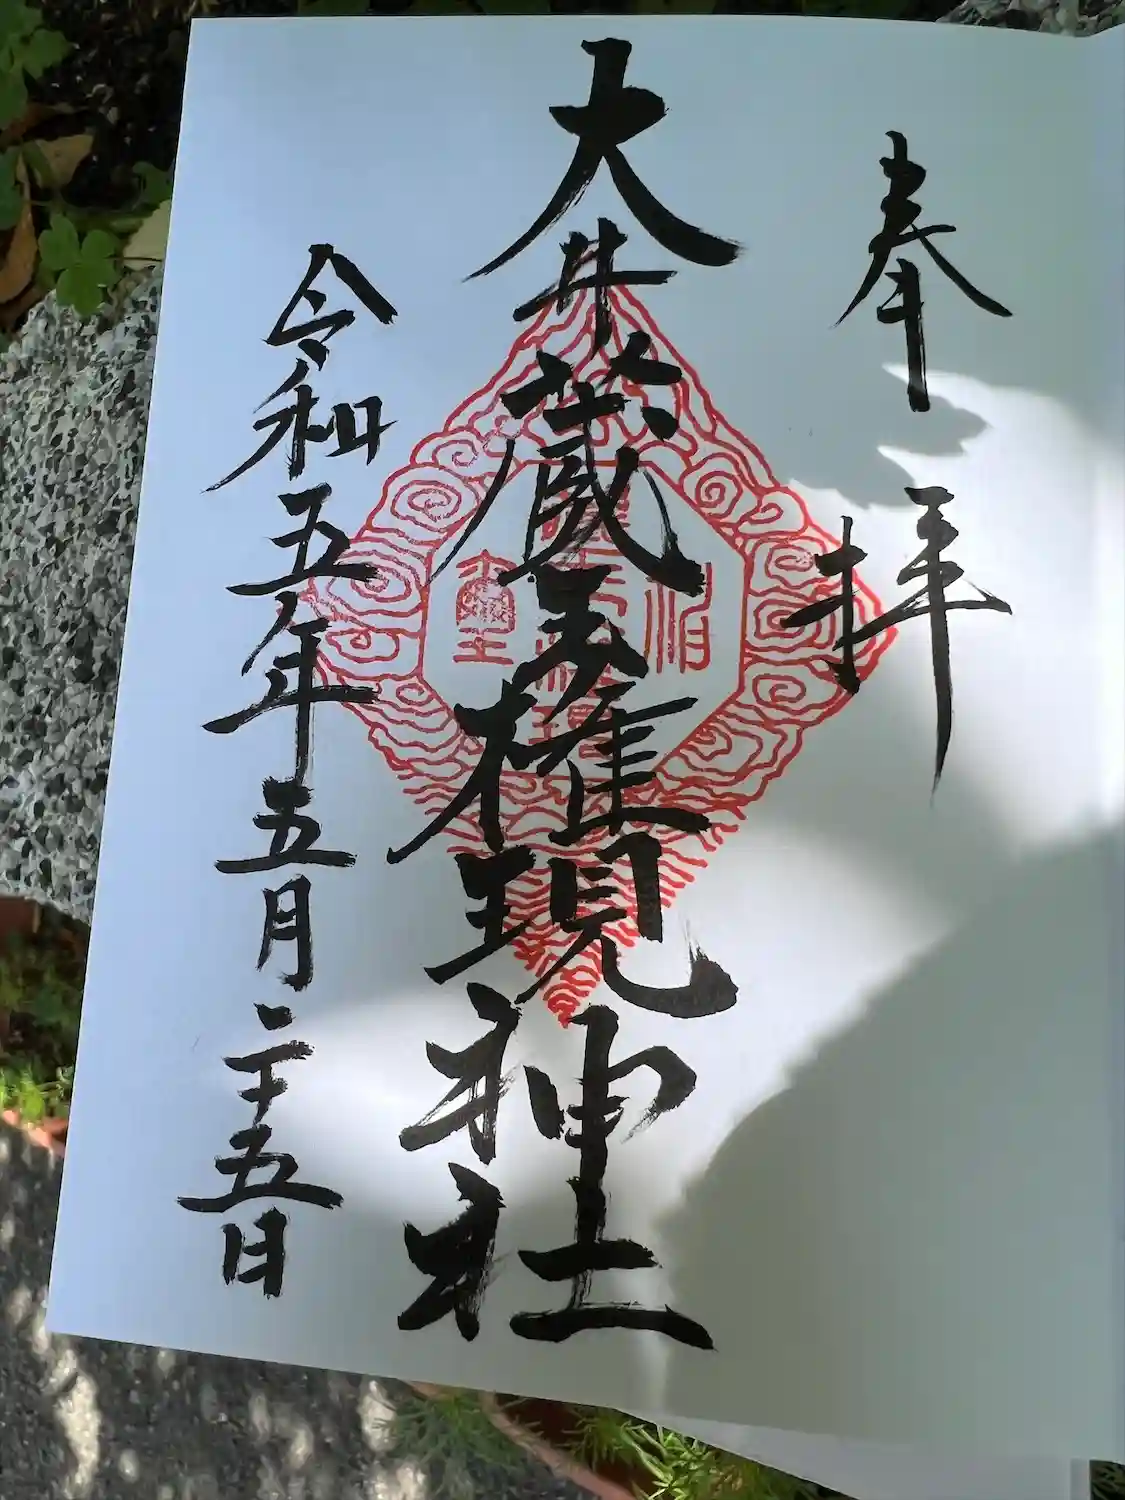 奉拝
大井蔵王権現神社
令和五年五月二十五日